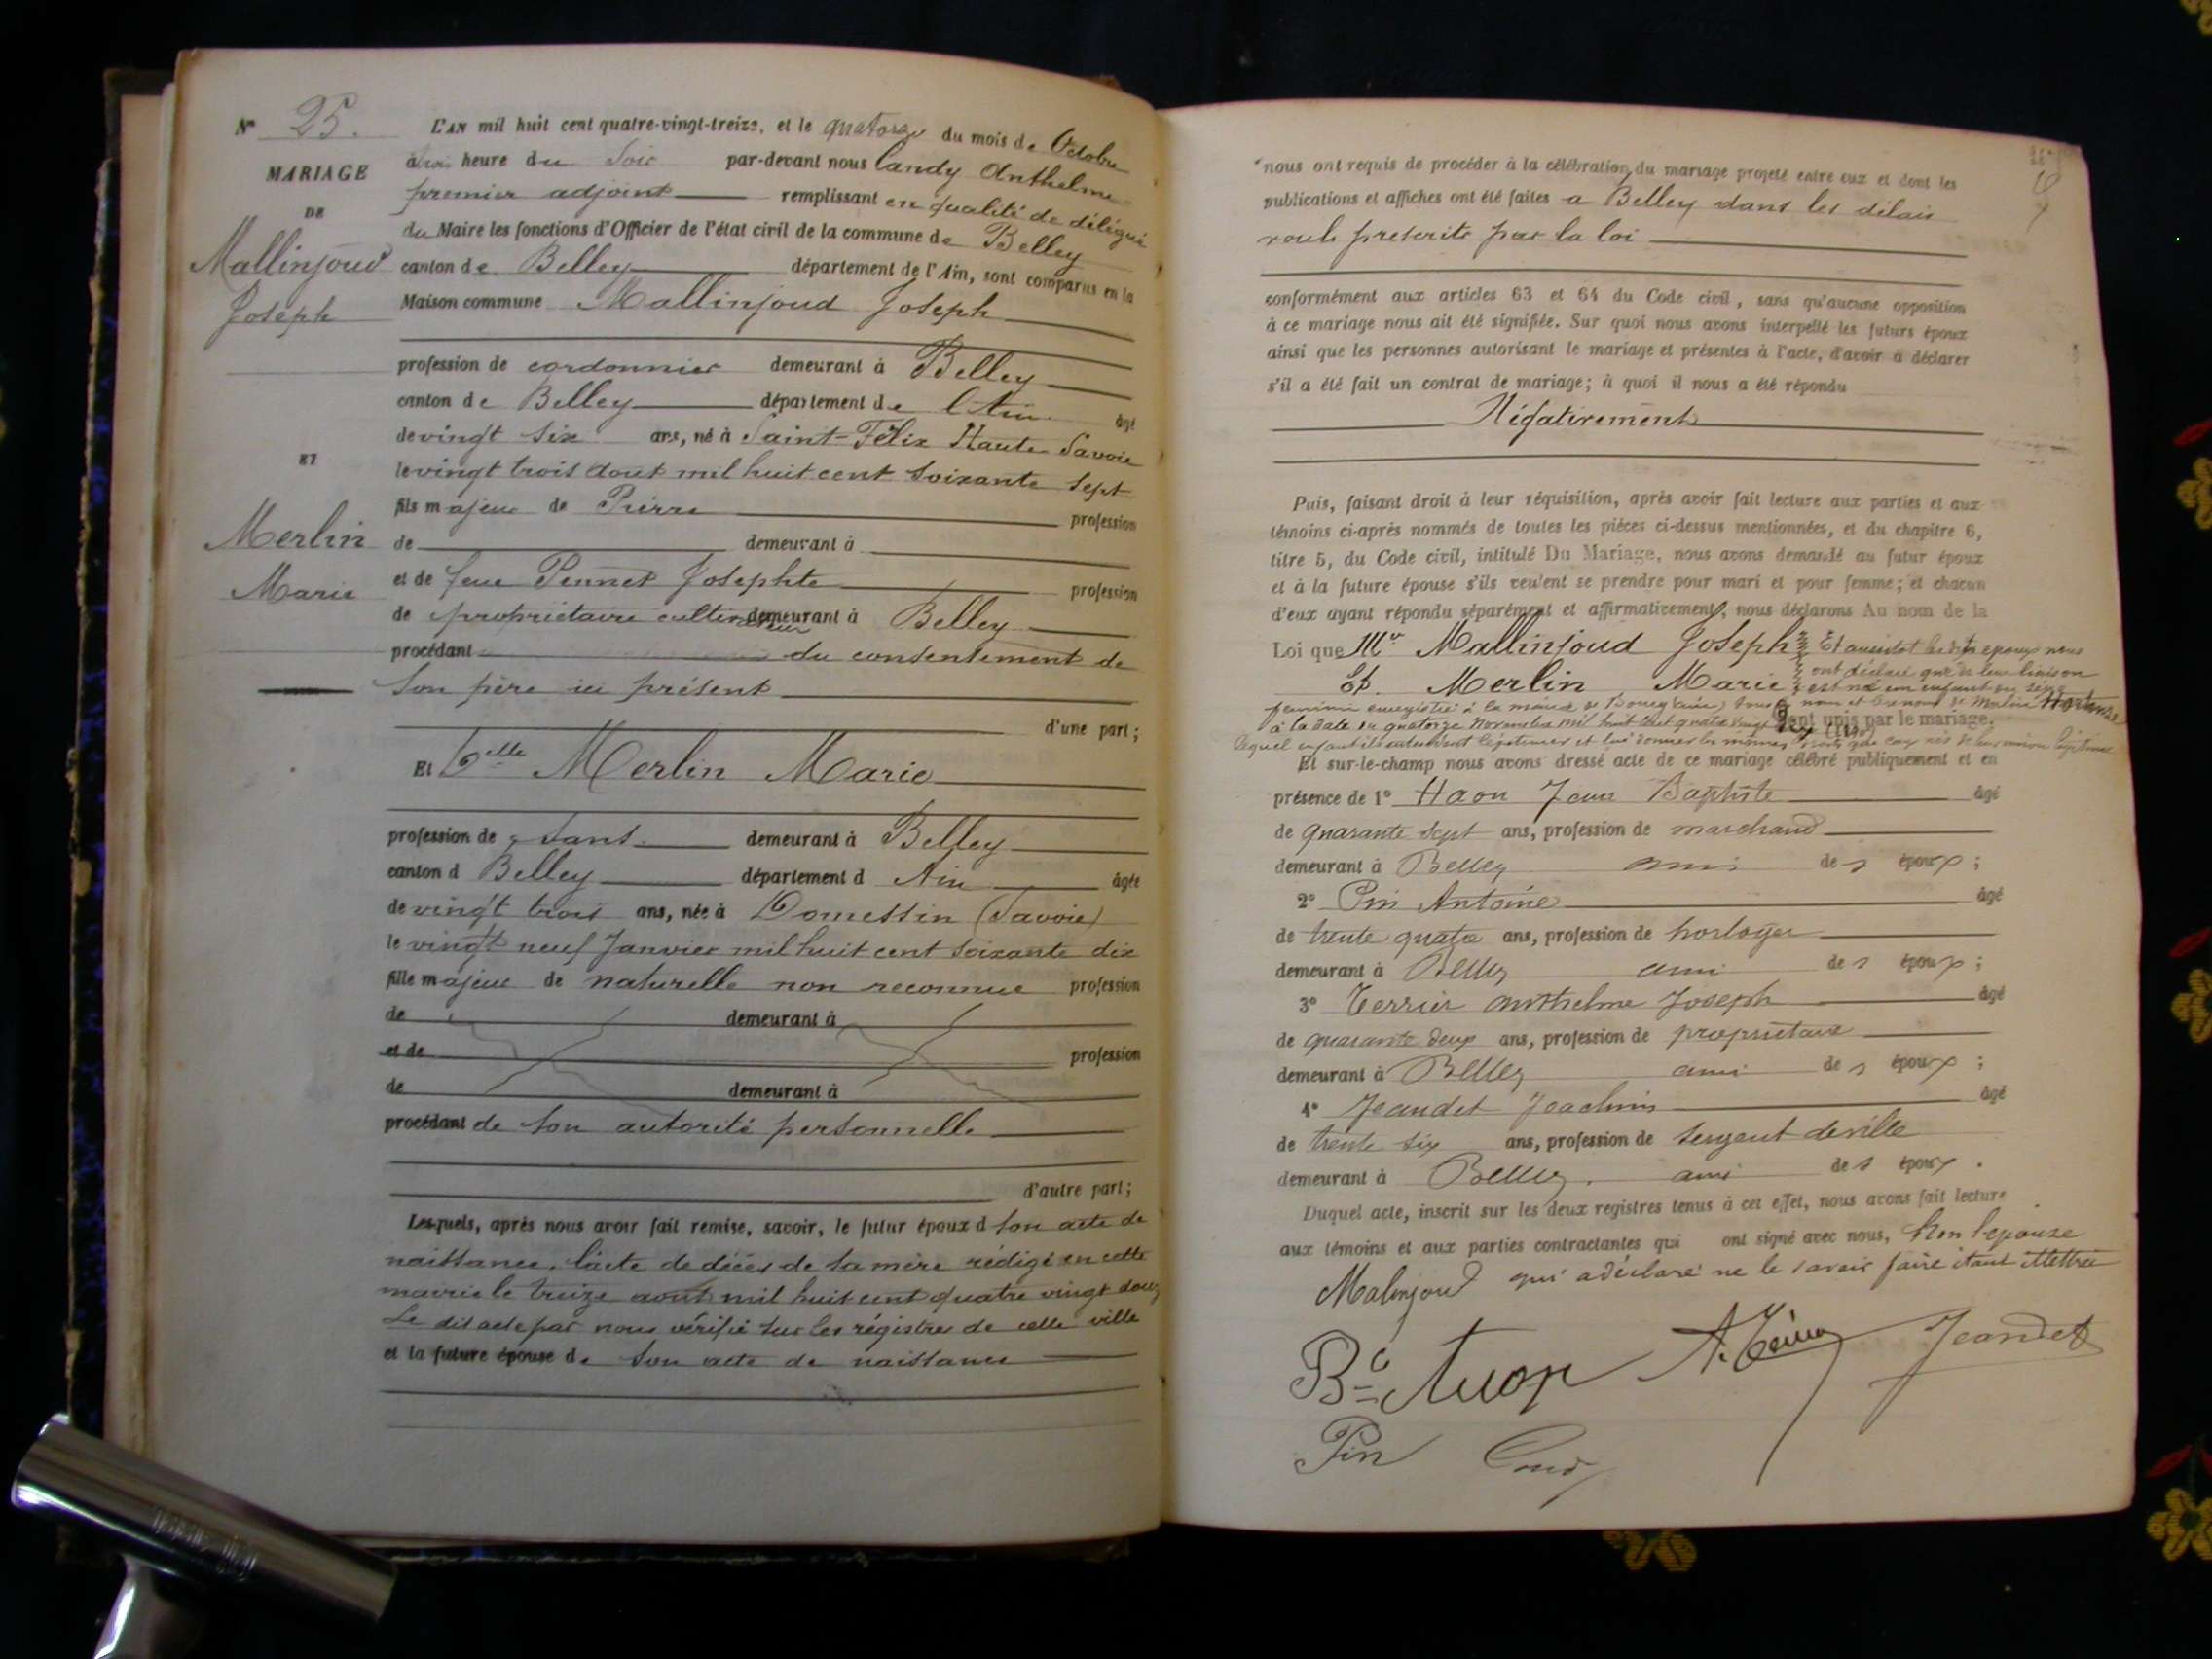 N° 25.
MARIAGE
DE
Mallinjoud
Joseph
ET
Merlin
Marie
L'AN mil huit cent quatre-vingt-treize, et le quatorze du mois de Octobre
à trois heure du Soir par-devant nous Candy Anthelme
premier adjoint remplissant en qualité de délégué
du Maire les fonctions d'Officier de l'état civil de la commune de Belley
canton de Belley département de l'Ain, sont comparus en la
Maison commune Mallinjoud Joseph
profession de cordonnier demeurant à Belley
canton de Belley département de l'Ain âgé
de vingt six ans, né à Saint-Félix Haute Savoie
le vingt trois aout mil huit cent soixante sept
fils majeur de Pierre profession
de demeurant à
et de feue Pennet Josephte profession
de propriétaire cultivateur demeurant à Belley
procédant du consentement de
son père ici présent
d'une part;
Et Delle Merlin Marie
profession de sans demeurant à Belley
canton d Belley département d Ain âgée
de vingt trois ans, née à Domessin (Savoie)
le vingt neuf Janvier mil huit cent soixante dix
fille majeur de naturelle non reconnue profession
de demeurant à
et de profession
de demeurant à
procédant de son autorité personnelle
d'autre part;
Lesquels, après nous avoir fait remise, savoir, le futur époux d son acte de
naissance, l'acte de décès de sa mère rédigé en cette
mairie le treize aout mil huit cent quatre vingt douze
Le dit acte par nous vérifié sur les régistres de cette ville
et la future épouse de son acte de naissance
nous ont requis de procéder à la célébration du mariage projeté entre eux et dont les
publications et affiches ont été faites a Belley dans les délais
voulus prescrits par la loi
conformément aux articles 63 et 64 du Code civil, sans qu'aucune opposition
à ce mariage nous ait été signifiée. Sur quoi nous avons interpellé les futurs époux
ainsi que les personnes autorisant le mariage et présentes à l'acte, d'avoir à déclarer
s'il a été fait un contrat de mariage; à quoi il nous a été répondu
Négativement
Puis, faisant droit à leur réquisition, après avoir fait lecture aux parties et aux
témoins ci-après nommés de toutes les pièces ci-dessus mentionnées, et du chapitre 6,
titre 5, du Code civil, intitulé Du Mariage, nous avons demandé au futur époux
et à la future épouse s'ils veulent se prendre pour mari et pour femme; et chacun
d'eux ayant répondu séparément et affirmativement, nous déclarons Au nom de la
Loi que Mr Mallinjoud Joseph Et aussitot lesdits epoux nous
Et Merlin Marie ont déclaré que de leur liaison
est né un enfant du sexe
feminin enregistré à la mairie de Bourg (Ain) sous le nom et prenom de Merlin Hortense
à la date du quatorze Novembre mil huit cent quatre vingt dix sont unis par le mariage.
lequel enfant ils entendent légitimer et lui donner les mêmes droits que ceux nés de leur union légitime
Et sur-le-champ nous avons dressé acte de ce mariage célébré publiquement et en
présence de 1° Haon Jean Baptiste âgé
de quarante sept ans, profession de marchand
demeurant à Belley ami des époux;
2° Pin Antoine âgé
de trente quatre ans, profession de horloger
demeurant à Belley ami des époux;
3° Terrier Anthelme Joseph âgé
de quarante deux ans, profession de propriétaire
demeurant à Belley ami des époux;
4° Jeandet Joachim âgé
de trente six ans, profession de sergent de ville
demeurant à Belley. ami des époux.
Duquel acte, inscrit sur les deux registres tenus à cet effet, nous avons fait lecture
aux témoins et aux parties contractantes qui ont signé avec nous, Non l'épouse
Malinjoud qui a déclaré ne le savoir faire étant illettrée
Jeandet
Pin